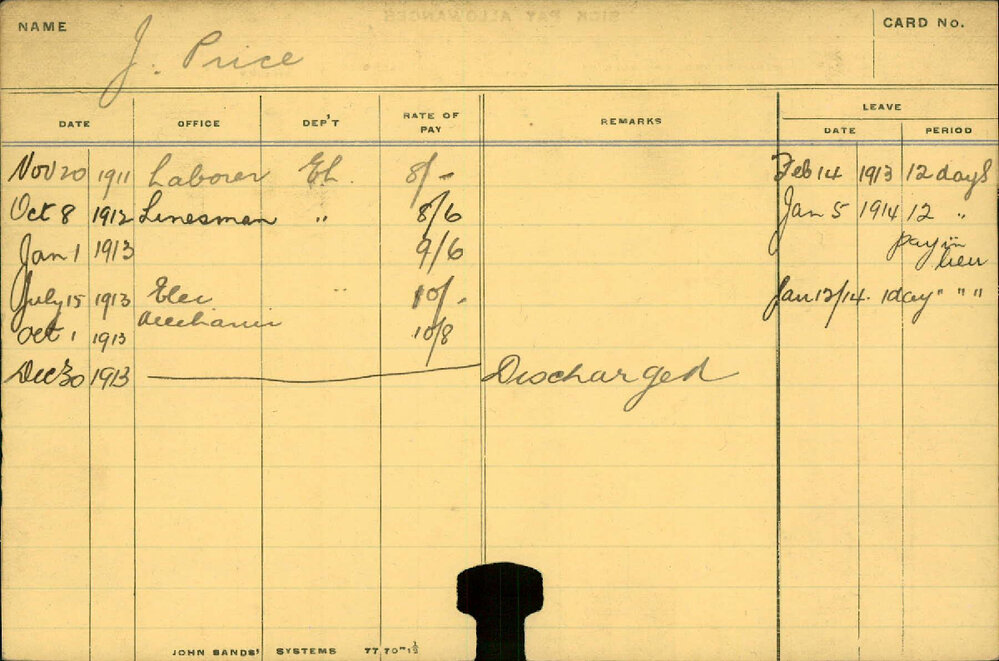 NAME J. Price CARD No.
LEAVE
DATE OFFICE DEP'T RATE OF PAY REMARKS DATE PERIOD
Nov 20 1911 Laborer El. 8/- Feb 14 1913 12 days
Oct 8 1912 Linesman " 8/6 Jan 5 1914 12 "
Jan 1 1913 9/6 pay in lieu
July 15 1913 Elec " 10/- Jan 12/14. 1 day " " "
Mechanic
Oct 1 1913 10/8
Dec 30 1913 Discharged
JOHN SANDS' SYSTEMS